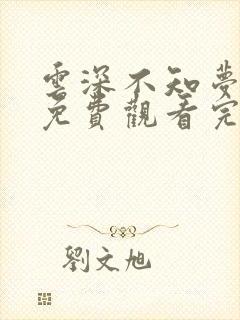 雲深不知夢
免費觀看完
劉文旭